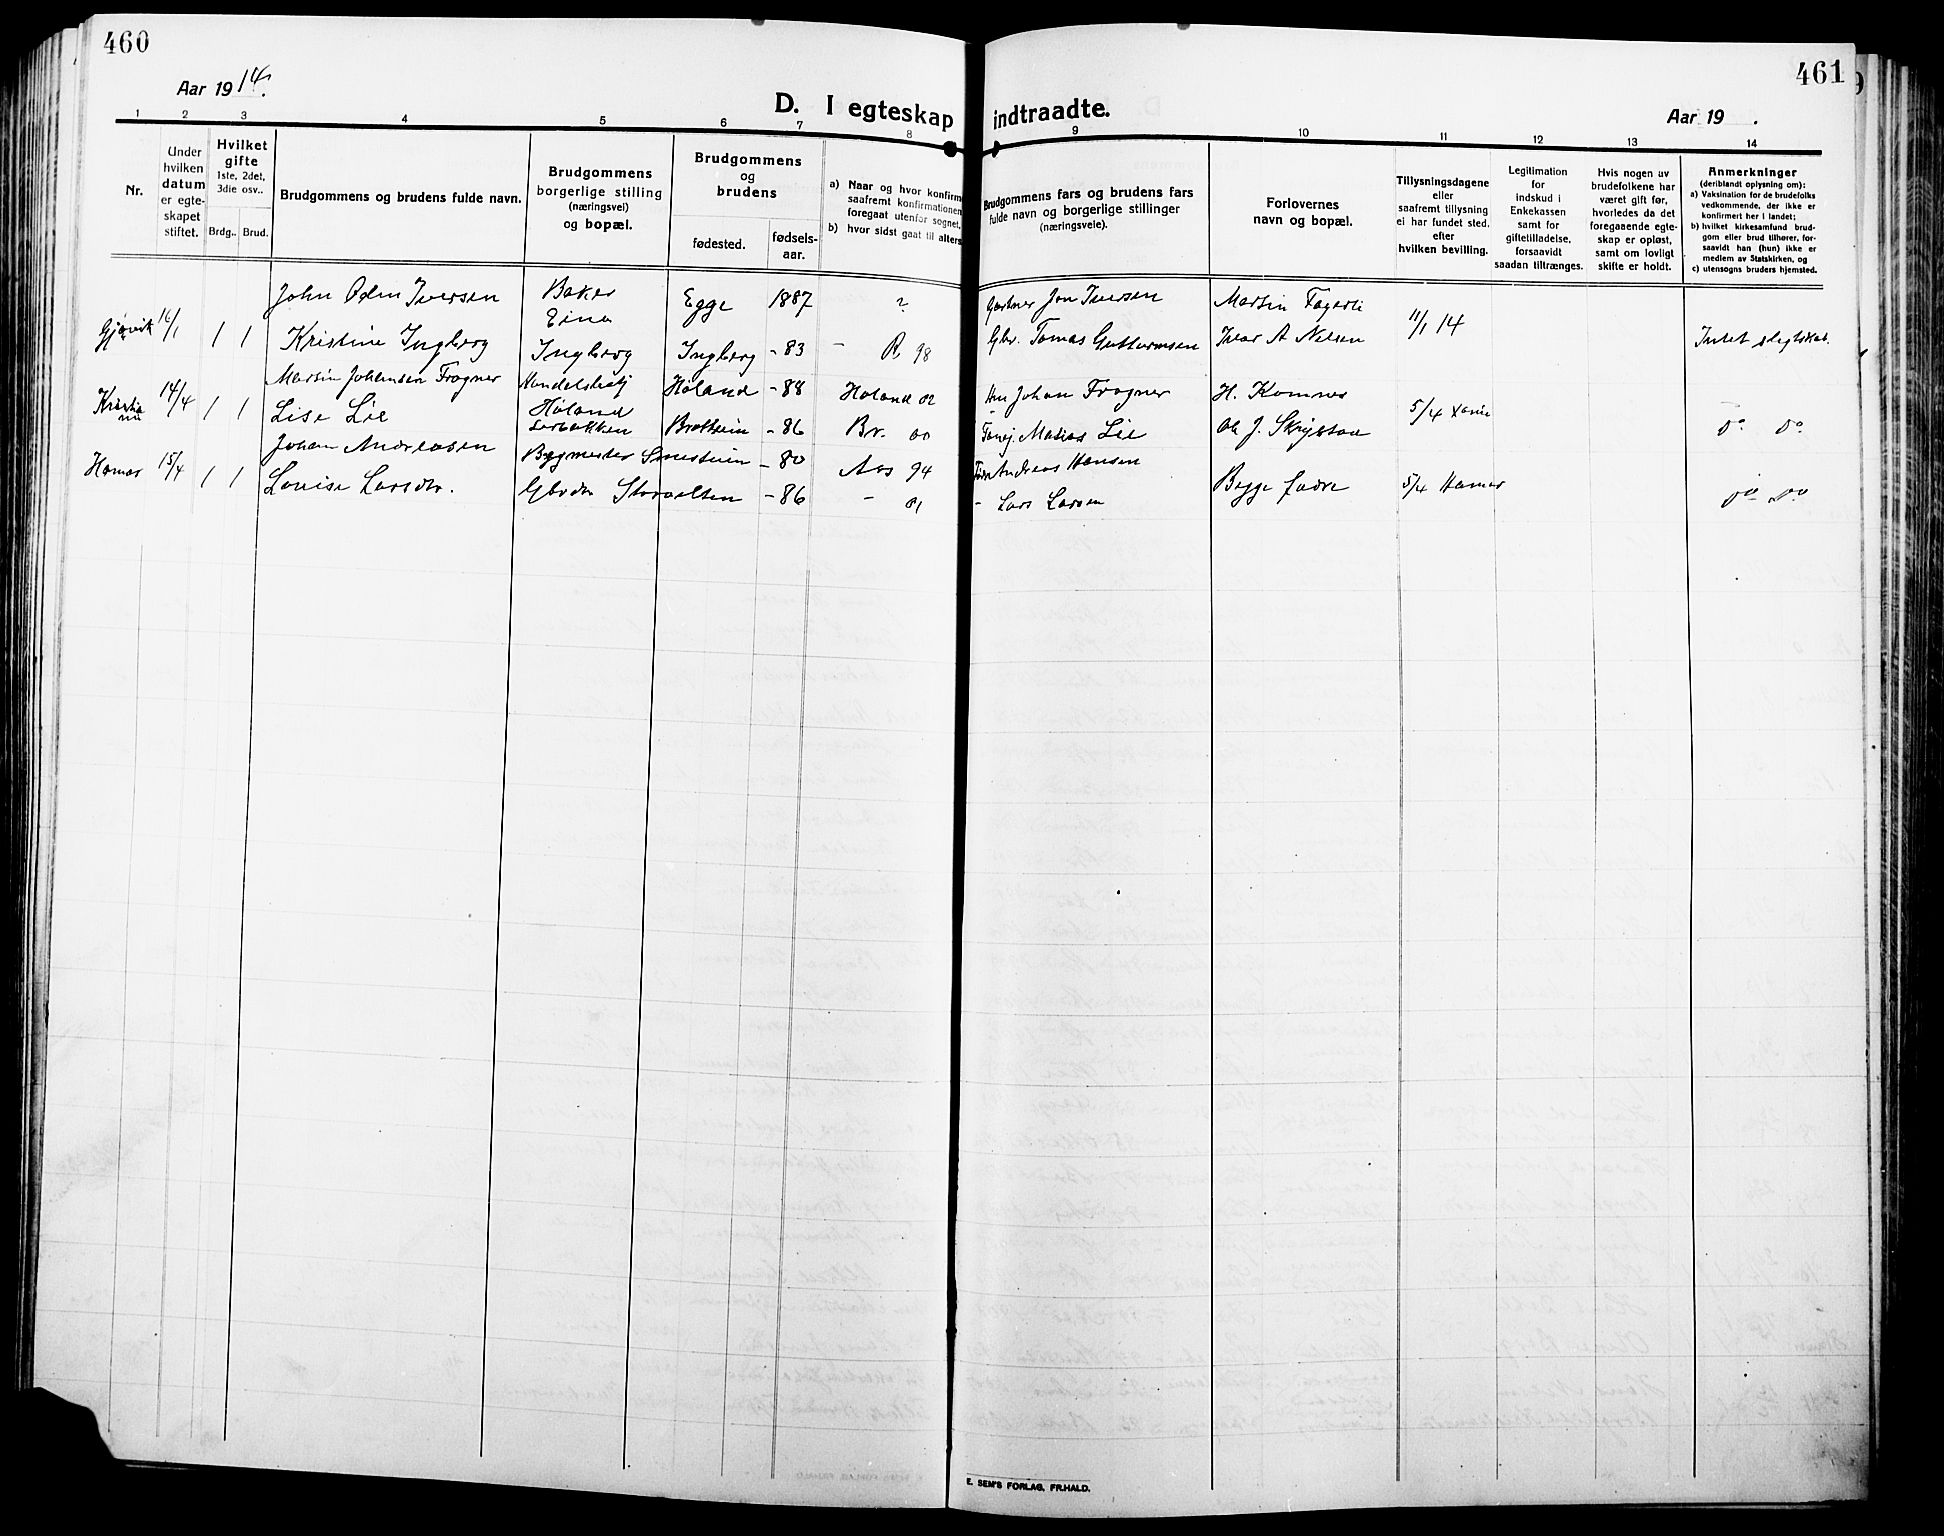 460
461
Aar 1914.
D. I egteskap indtraadte.
Aar 19 .
1 2 3 4 5 6 7 8 9 10 11 12 13 14
Nr.
Under hvilken datum er egte-skapet stiftet.
Hvilket gifte 1ste, 2det, 3die osv..
Brdg.. Brud.
Brudgommens og brudens fulde navn.
Brudgommens borgerlige stilling (næringsvei) og bopæl.
Brudgommens og brudens
fødested.
fødsels-aar.
a) Naar og hvor konfirm
saafremt konfirmationen
foregaat utenfor sognet,
b) hvor sidst gaat til alters
Brudgommens fars og brudens fars
fulde navn og borgerlige stillinger
(næringsveie).
Forlovernes
navn og bopæl.
Tillysningsdagene
eller
saafremt tillysning
ei har fundet sted.
efter
hvilken bevilling.
Legitimation
for
indskud i
Enkekassen
samt for
giftetilladelse,
forsaavidt
saadan tiltrænges.
Hvis nogen av
brudefolkene har
været gift før,
hvorledes da det
foregaaende egte-
skap er opløst,
samt om lovligt
skifte er holdt.
Anmerkninger
(deriblandt oplysning om):
a) Vaksination for de brudefolks
vedkommende, der ikke er
konfirmert her i landet;
b) hvilket kirkesamfund brud-
gom eller brud tilhører, for-
saavidt han (hun) ikke er
medlem av Statskirken, og
c) utensogns bruders hjemsted.
John Odin Iversen Baker Egge 1887 ? Gartner Jon Iversen Martin Fagerli
Eina
Gjøvik 16/1 1 1 Kristine Ingberg Ingberg Ingberg - 83 - R 98 Gbr. Tomas Guttormsen Ivar A Nelsen 11/1 14 Intet slegtskab.
Martin Johansen Frogner Handelsbetj Høland - 88 Høland 02 Johan Frogner H. Komnes
Høland
Kristiania 14/4 1 1 Lise Lie - 86 Br. 00 Matias Lie Ole J. 5/4 Xania Do Do
Johan Andreasen Bygmester - 80 Aas 94 Andreas Hansen
Hamar 15/4 1 1 Louise Larsdtr. Gbrdtr - 86 - 01 - Lars Larsen Begge fædre 5/4 Hamar Do Do
E. SEM'S FORLAG, FR.HALD.